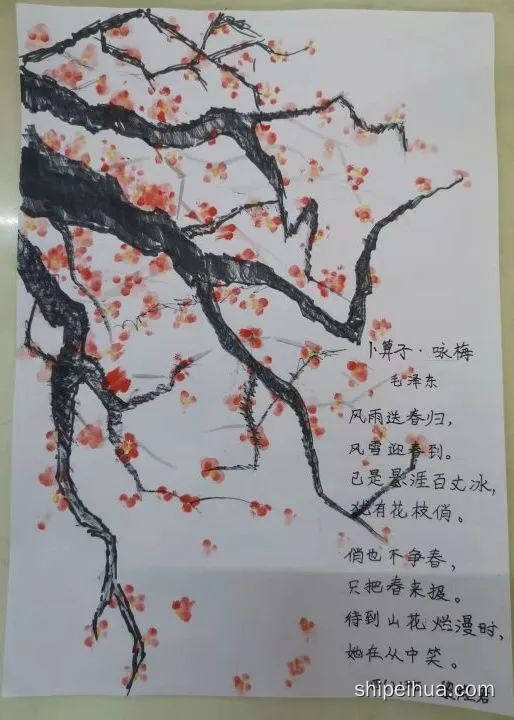 卜算子·咏梅
毛泽东
风雨送春归，
风雪迎春到。
已是悬涯百丈冰，
犹有花枝俏。
俏也不争春，
只把春来报。
待到山花烂漫时，
她在从中笑。
shipeihua.com